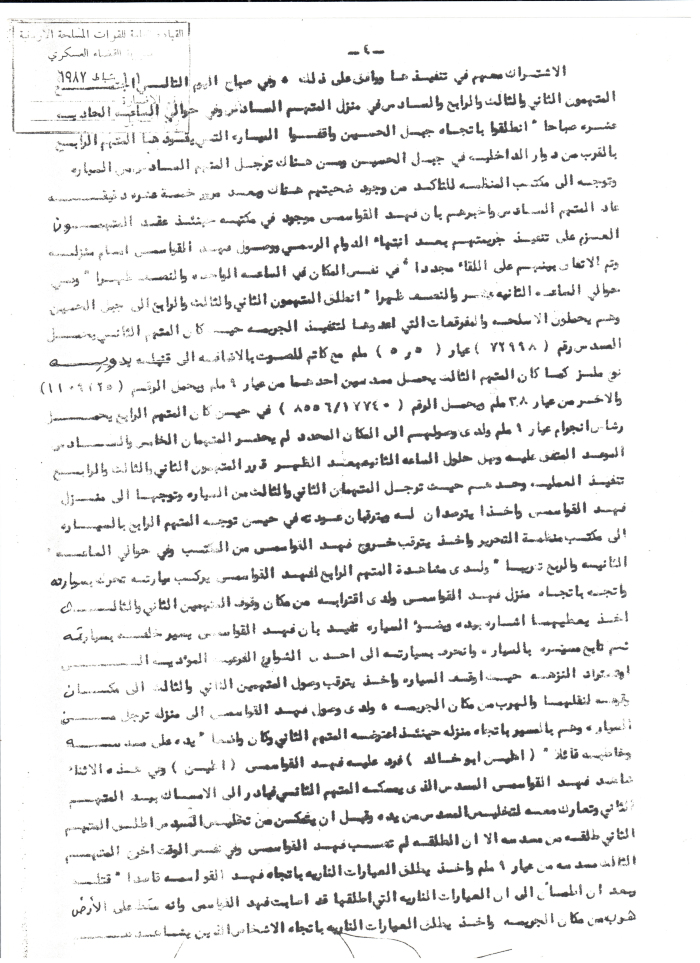 القيادة العامة للقوات المسلحة الاردنية
القضاء العسكري
٦٩٨٧
ـ ٤ ـ
الاشتراك معهم في تنفيذها ووافق على ذلك ٠ وفي صباح اليوم التالي اجتمع
المتهمون الثاني والثالث والرابع والسادس في منزل المتهم السادس وفي حوالي الساعه الحاديه
عشره صباحا " انطلقوا باتجاه جبل الحسين واقفوا السياره التي يقودها المتهم الرابع
بالقرب من دوار الداخليه في جبل الحسين ومن هناك ترجل المتهم السادس من السياره
وتوجه الى مكتب المنظمه للتاكد من وجود ضحيتهم هناك وبعد مرور خمسة عشره دقيقه
عاد المتهم السادس واخبرهم بان فهد القواسمي موجود في مكتبه حينئذ عقد المتهمون
العزم على تنفيذ جريمتهم بعد انتهاء الدوام الرسمي ووصول فهد القواسمي امام منزله
وتم الاتفاق بينهم على اللقاء مجددا " في نفس المكان في الساعه الواحده والنصف ظهرا " وفي
حوالي الساعه الثانيه عشر والنصف ظهرا " انطلق المتهمون الثاني والثالث والرابع الى جبل الحسين
وهم يحملون الاسلحه والمفرقعات التي اعدوها لتنفيذ الجريمه حيث كان المتهم الثاني يحمل
المسدس رقم ( ٧٢٩٩٨ ) عيار ( ٥ر٥ ) ملم مع كاتم للصوت بالاضافه الى قنبله يدويه
نوع ملز كما كان المتهم الثالث يحمل مسدسين احدهما من عيار ٩ ملم ويحمل الرقم
والاخر من عيار ٣٨ ملم ويحمل الرقم ( ٨٥٥٦/١٧٧٤٠ ) في حين كان المتهم الرابع يحمل
رشاش انجرام عيار ٩ ملم ولدى وصولهم الى المكان المحدد لم يحضر المتهمان الخامس والسادس
الموعد المتفق عليه وقبل حلول الساعه الثانيه بعد الظهر قرر المتهمون الثاني والثالث والرابع
تنفيذ العمليه وحدهم حيث ترجل المتهمان الثاني والثالث من السياره وتوجها الى منزل
فهد القواسمي واخذا يترصدان له ويترقبان عودته في حين توجه المتهم الرابع بالسياره
الى مكتب منظمة التحرير واخذ يترقب خروج فهد القواسمي من المكتب وفي حوالي الساعه
الثانيه والربع تقريبا " ولدى مشاهدة المتهم الرابع لفهد القواسمي يركب سيارته تحرك بسيارته
واتجه باتجاه منزل فهد القواسمي ولدى اقترابه من مكان وقوف المتهمين الثاني والثالث
اخذ يعطيهما اشاره بيده وبضوء السياره تفيد بان فهد القواسمي يسير خلفه بسيارته
ثم تابع مسيره بالسياره وانحرف بسيارته الى احدى الشوارع الفرعيه المؤديه الى
النزهه حيث اوقف السياره واخذ يترقب وصول المتهمين الثاني والثالث الى مكان
وقوفه لنقلهما والهرب من مكان الجريمه ٠ ولدى وصول فهد القواسمي الى منزله ترجل من
السياره وهم بالسير باتجاه منزله حينئذ اعترضه المتهم الثاني وكان واضعا " يده على مسدسه
وخاطبه قائلا " ( اطلس ابو خالد ) فرد عليه فهد القواسمي وفي هذه الاثناء
شاهد فهد القواسمي المسدس الذي يمسكه المتهم الثاني فبادر الى الامساك بيد المتهم
الثاني وتعارك معه لتخليص المسدس من يده وقبل ان يتمكن من تخليص المسدس اطلق المتهم
الثاني طلقه من مسدسه الا ان الطلقه لم تصب فهد القواسمي وفي نفس الوقت اخرج المتهم
الثالث مسدسه من عيار ٩ ملم واخذ يطلق العيارات الناريه باتجاه فهد القواسمه قاصدا " قتله
وبعد ان اطمأن الى ان العيارات الناريه التي اطلقها قد اصابت فهد القواسمي وانه سقط على الأرض
هرب من مكان الجريمه واخذ يطلق العيارات الناريه باتجاه الاشخاص الذين